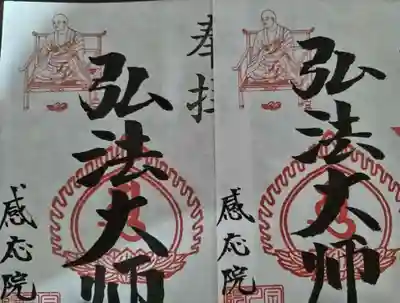 奉拝
弘法大师
感応院
弘法大师
感応院